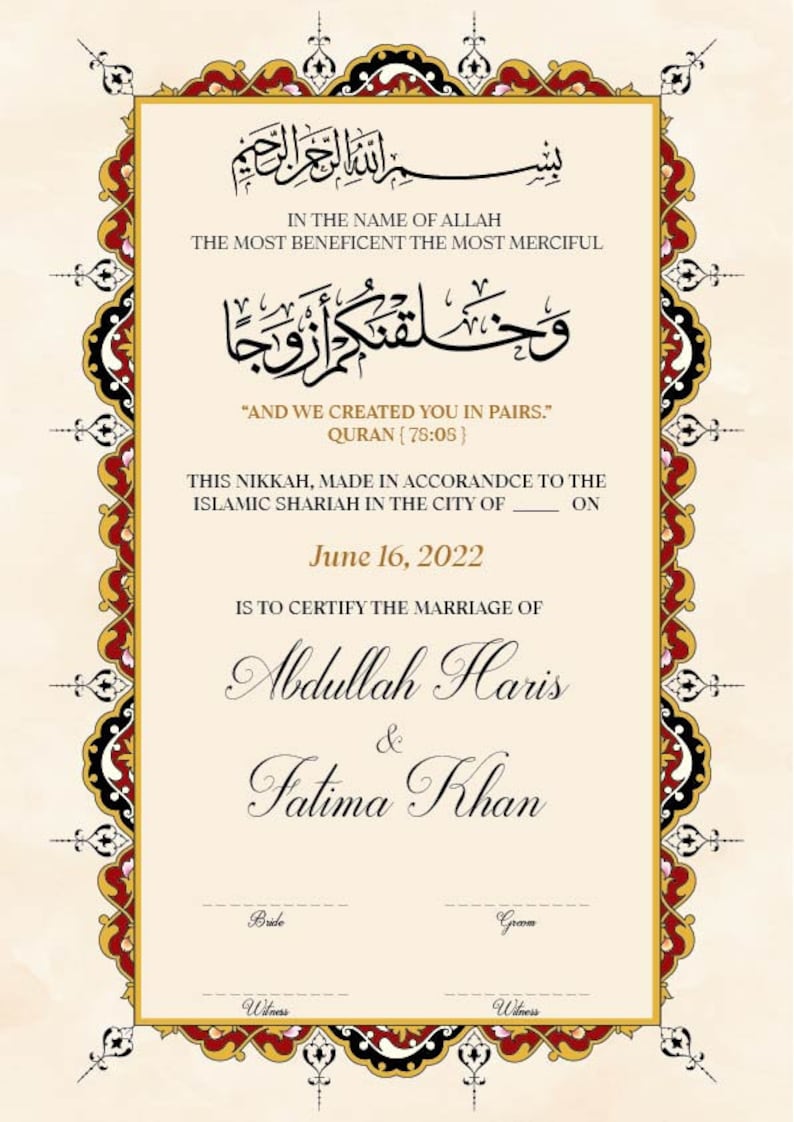 بِسْمِ اللَّهِ الرَّحْمَنِ الرَّحِيمِ
IN THE NAME OF ALLAH
THE MOST BENEFICENT THE MOST MERCIFUL
وَخَلَقْنَكُمْ أَزْوَجًا
“AND WE CREATED YOU IN PAIRS.”
QURAN { 78:08 }
THIS NIKKAH, MADE IN ACCORANDCE TO THE
ISLAMIC SHARIAH IN THE CITY OF _____ ON
June 16, 2022
IS TO CERTIFY THE MARRIAGE OF
Abdullah Haris
&
Fatima Khan
Bride Groom
Witness Witness